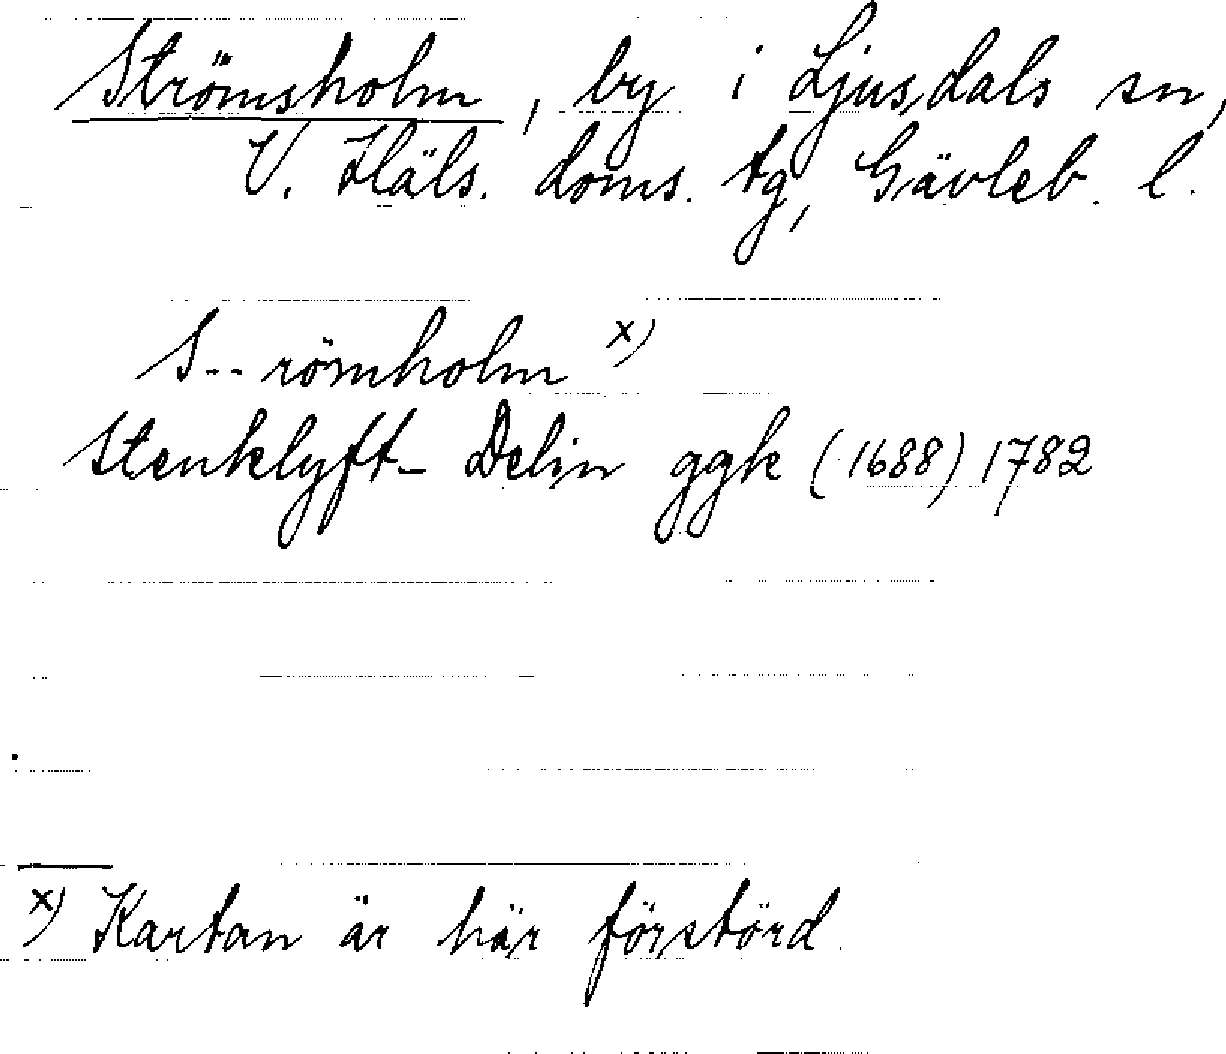 Strömsholm, by i Ljusdals sn,
V. Häls. doms. tg, Gävleb. l.
S--römholm x)
Stenklyft- Delin ggk (1688) 1782
x) Kartan är här förstörd.